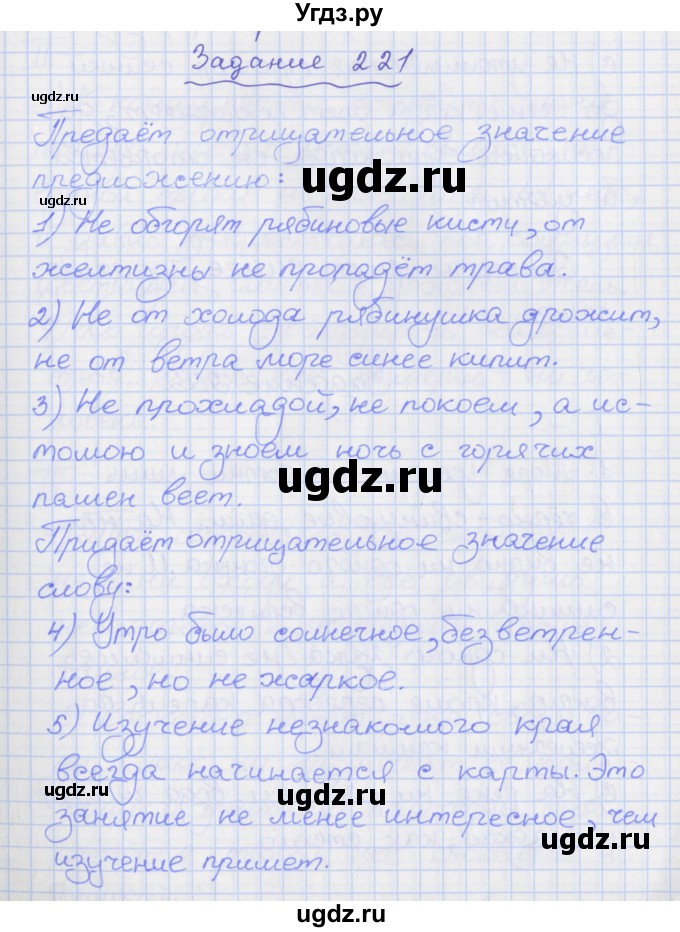 Угдз.ру
Задание 221
ugdz.ru
Предаёт отрицательное значение
ugdz.ru
предложению:
ugdz.ru
1) Не обгорят рябиновые кисти, от
желтизны не пропадёт трава.
2) Не от холода рябинушка дрожит,
не от ветра море синее кипит.
3) Не прохладой, не покоем, а ис-
томою и зноем ночь с горячих
ugdz.ru
пашен веет.
Придаёт отрицательное значение
слову:
4) Утро было солнечное, безветрен-
ное, но не жаркое.
5) Изучение незнакомого края
всегда начинается с карты. Это
ugdz.ru
ugdz.ru
занятие не менее интересное, чем
ugdz.ru
изучение примет.
ugdz.ru